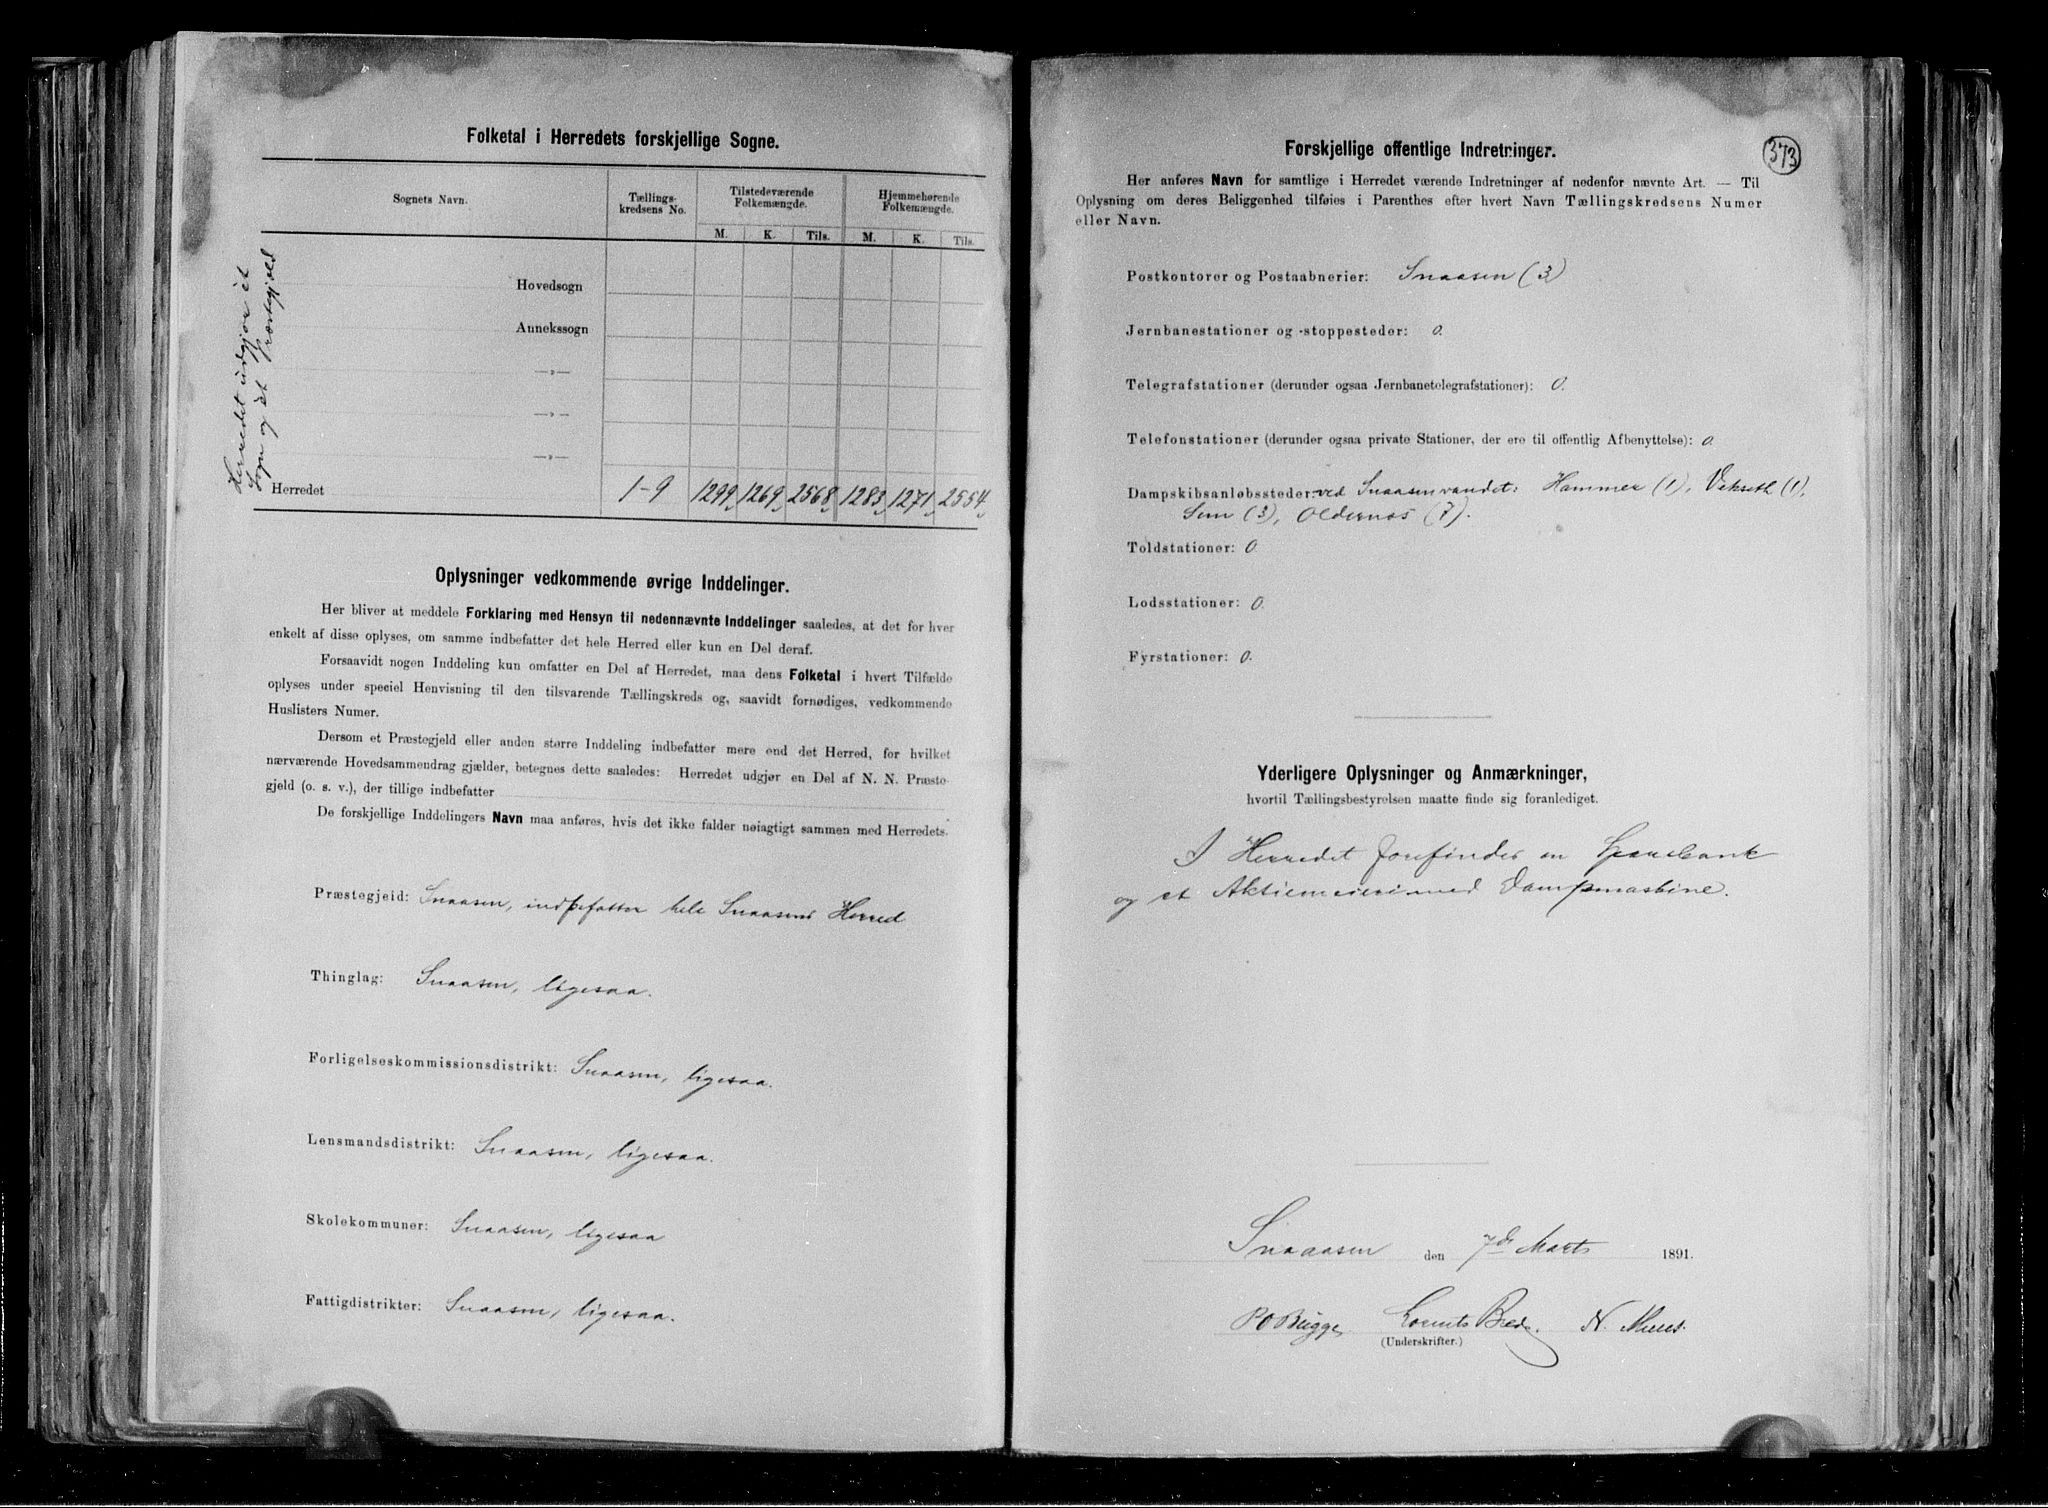 Folketal i Herredets forskjellige Sogne.
Sognets Navn.
Tællings-
kredsens No.
Tilstedeværende
Folkemængde.
Hjemmehørende
Folkemængde.
M. K. Tils. M. K. Tils.
Herredet udgjør et
Sogn og et Præstegjeld
Hovedsogn
Annekssogn
—„—
—„—
—„—
Herredet 1-9 1299 1269 2568 1283 1271 2554
Oplysninger vedkommende øvrige Inddelinger.
Her bliver at meddele Forklaring med Hensyn til nedennævnte Inddelinger saaledes, at det for hver
enkelt af disse oplyses, om samme indbefatter det hele Herred eller kun en Del deraf.
Forsaavidt nogen Inddeling kun omfatter en Del af Herredet, maa dens Folketal i hvert Tilfælde
oplyses under speciel Henvisning til den tilsvarende Tællingskreds og, saavidt fornødiges, vedkommende
Huslisters Numer.
Dersom et Præstegjeld eller anden større Inddeling indbefatter mere end det Herred, for hvilket
nærværende Hovedsammendrag gjælder, betegnes dette saaledes: Herredet udgjør en Del af N. N. Præste-
gjeld (o. s. v.), der tillige indbefatter
De forskjellige Inddelingers Navn maa anføres, hvis det ikke falder nøiagtigt sammen med Herredets.
Præstegjeld: Snaasen, indbefatter hele Snaasens Herred
Thinglag: Snaasen, ligesaa.
Forligelseskommissionsdistrikt: Snaasen, ligesaa.
Lensmandsdistrikt: Snaasen, ligesaa.
Skolekommuner: Snaasen, ligesaa
Fattigdistrikter: Snaasen, ligesaa.
373
Forskjellige offentlige Indretninger.
Her anføres Navn for samtlige i Herredet værende Indretninger af nedenfor nævnte Art. — Til
Oplysning om deres Beliggenhed tilføies i Parenthes efter hvert Navn Tællingskredsens Numer
eller Navn.
Postkontorer og Postaabnerier: Snaasen (3)
Jernbanestationer og -stoppesteder: 0.
Telegrafstationer (derunder ogsaa Jernbanetelegrafstationer): 0.
Telefonstationer (derunder ogsaa private Stationer, der ere til offentlig Afbenyttelse): 0.
Dampskibsanløbssteder: ved Snaasenvandet: Hammer (1), Vekseth (1),
Sem (3), Oldernes (7).
Toldstationer: 0.
Lodsstationer: 0.
Fyrstationer: 0.
Yderligere Oplysninger og Anmærkninger,
hvortil Tællingsbestyrelsen maatte finde sig foranlediget.
I Herredet forefindes en Sparebank
og et Aktiemeieri med Dampmaskine.
Snaasen den 7de Marts 1891.
P O Bugge Lorents N.
(Underskrifter.)